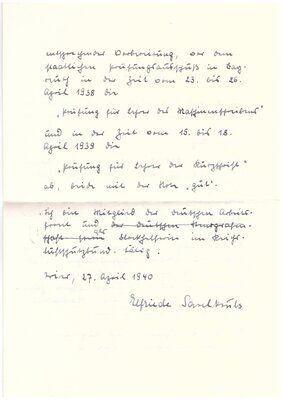 entsprechender Vorbereitung, vor dem
staatlichen Prüfungsausschuß in Bay-
reuth in der Zeit vom 23. bis 26.
April 1938 die
„Prüfung für Lehrer des Maschinenschreibens"
und in der Zeit vom 15. bis 18.
April 1939 die
„Prüfung für Lehrer der Kurzschrift"
ab, beide mit der Note „gut".
Ich bin Mitglied der deutschen Arbeits-
front und der deutschen Stenografen-
schaft als Blockhelferin im Reichs-
luftschutzbund tätig.
Wien, 27. April 1940
Elfriede